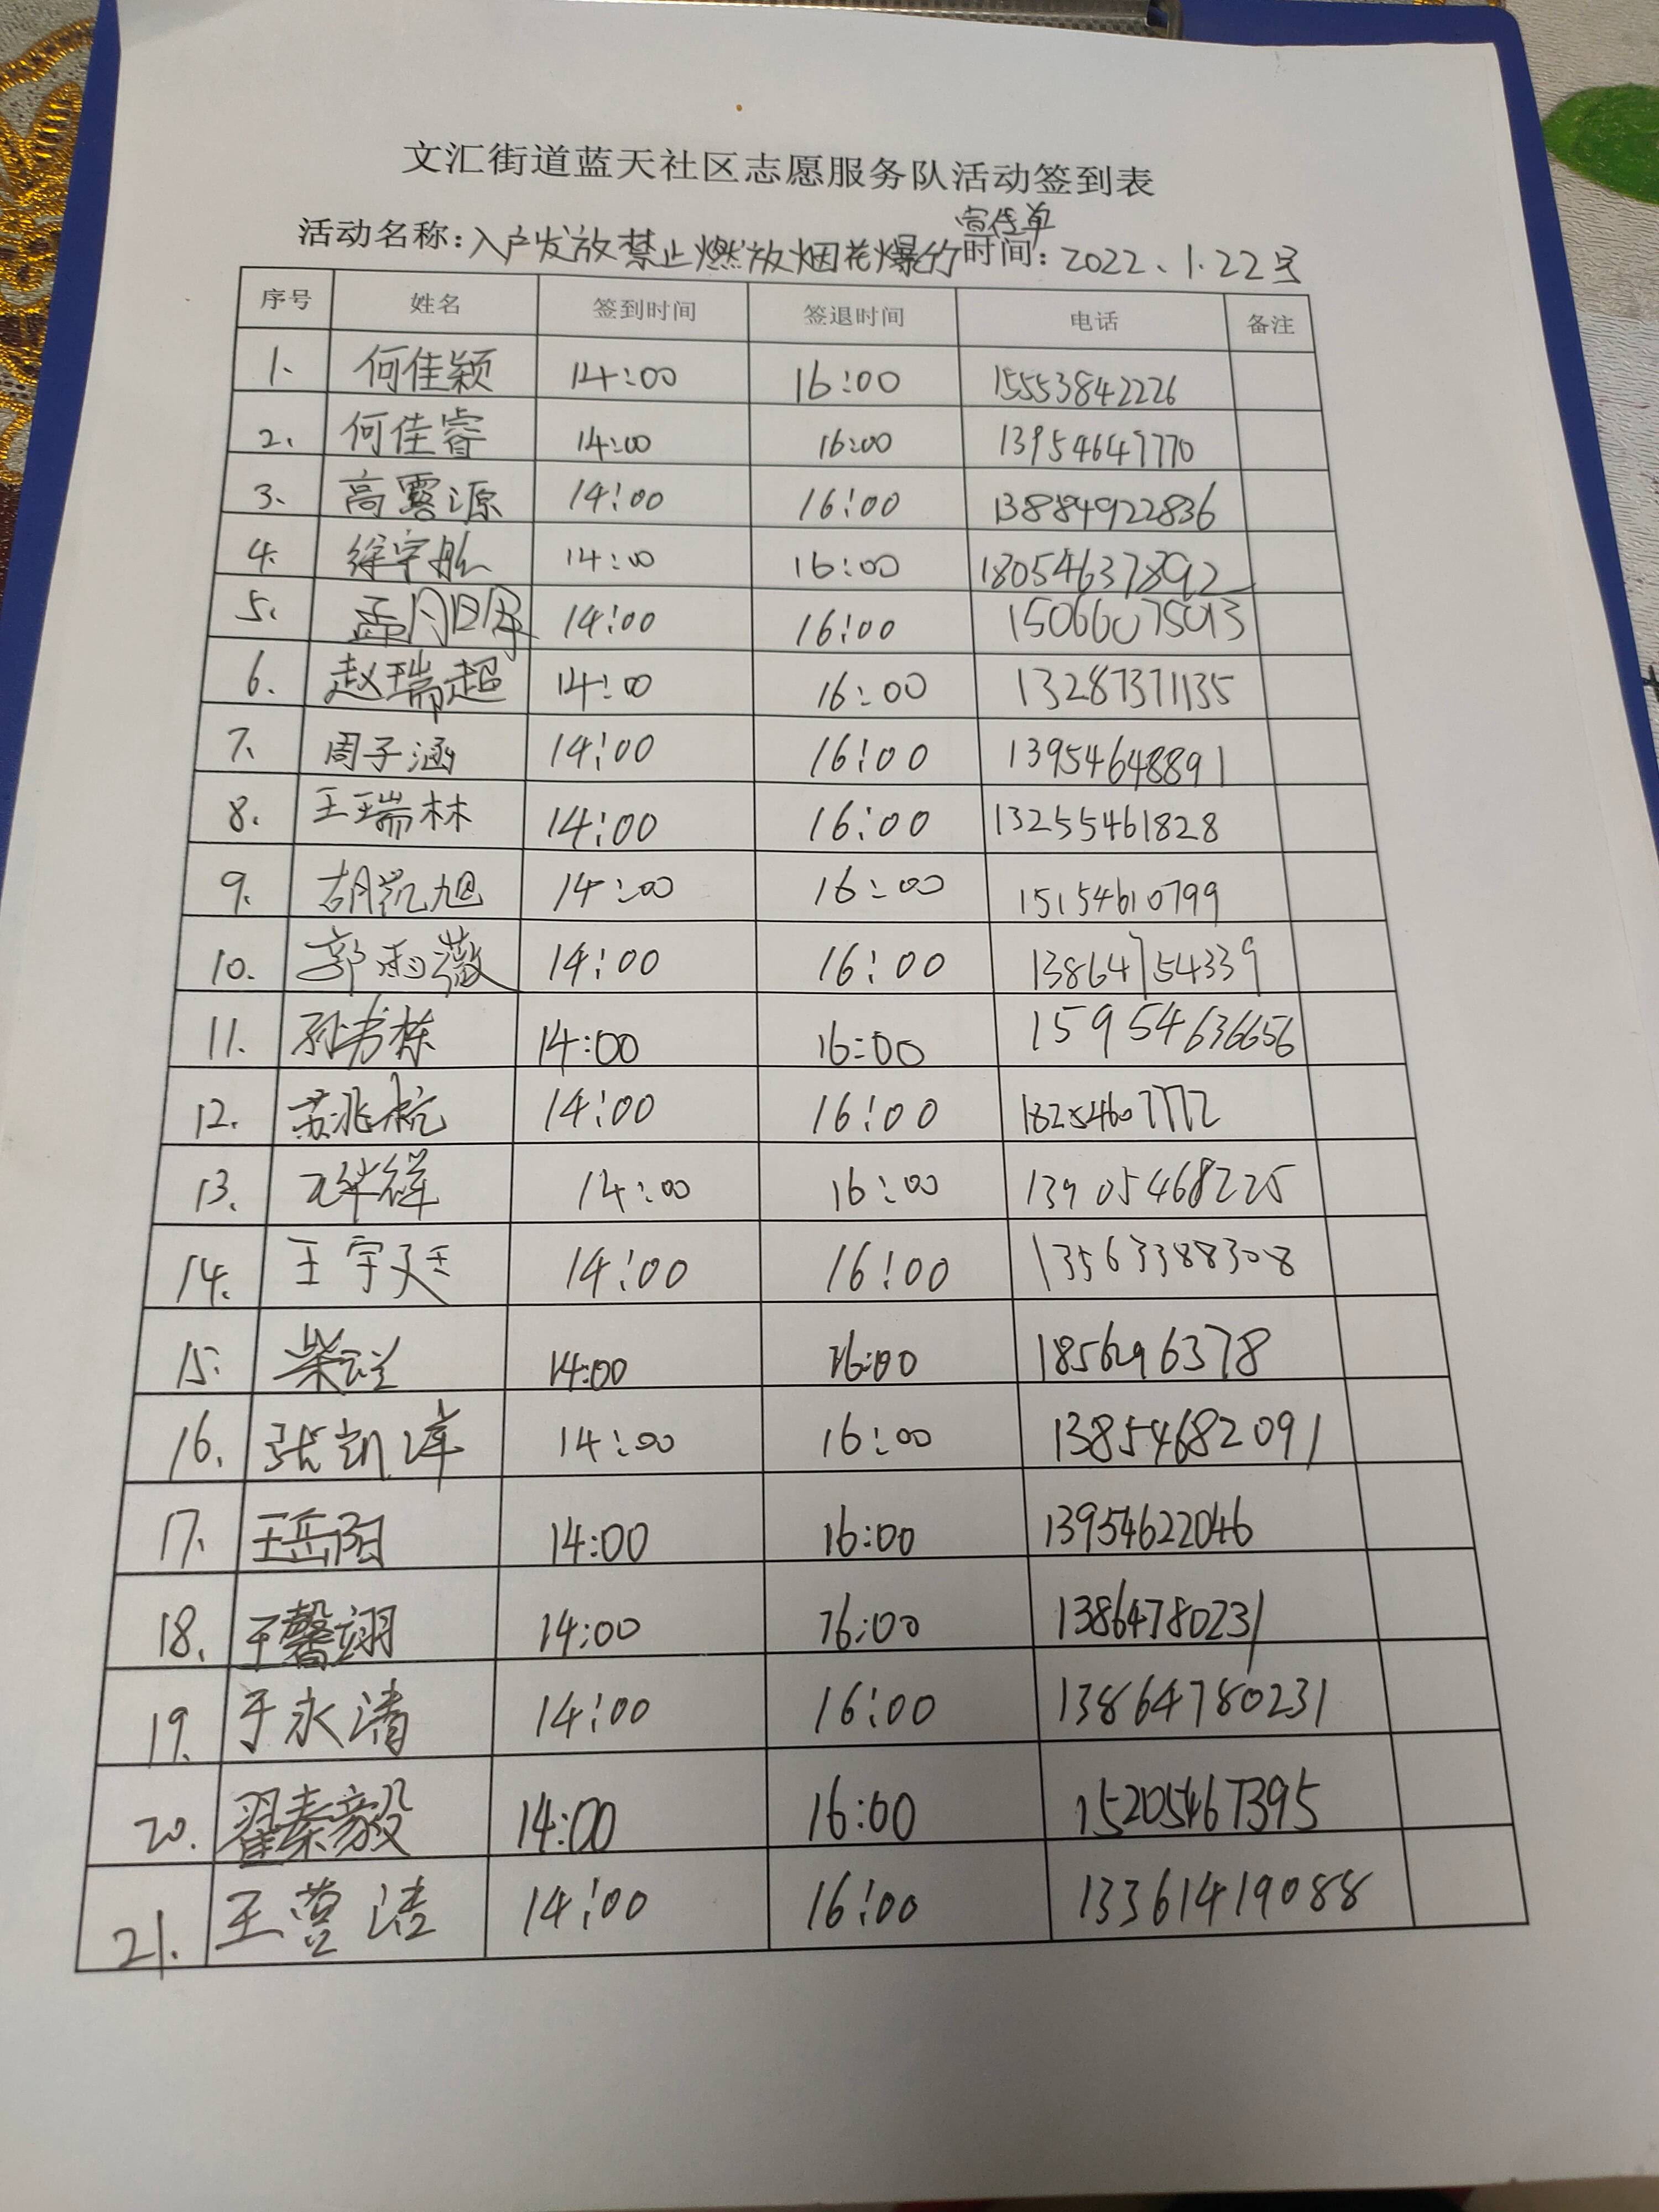 文汇街道蓝天社区志愿服务队活动签到表
宣传单
活动名称：入户发放禁止燃放烟花爆竹 时间：2022、1.22号
序号 姓名 签到时间 签退时间 电话 备注
1. 何佳颖 14:00 16:00 15553842226
2. 何佳睿 14:00 16:00 13954647770
3. 高露源 14:00 16:00 13884922836
4. 徐宇航 14:00 16:00 18054637892
5. 14:00 16:00 15066075013
6. 赵瑞超 14:00 16:00 13287371135
7. 周子涵 14:00 16:00 13954648891
8. 王瑞林 14:00 16:00 13255461828
9. 胡凯旭 14:00 16:00 15154610799
10. 郭雨薇 14:00 16:00 13864754339
11. 孙书栋 14:00 16:00 15954636656
12. 苏兆杭 14:00 16:00 18254607772
13. 14:00 16:00 13905468225
14. 王宇廷 14:00 16:00 13563388308
15. 14:00 16:00
16. 张凯淖 14:00 16:00 13854682091
17. 王岳阳 14:00 16:00 13954622046
18. 于馨翊 14:00 16:00 13864780231
19. 于永清 14:00 16:00 13864780231
20. 翟秦毅 14:00 16:00 15205467395
21. 王萱洁 14:00 16:00 13361419088